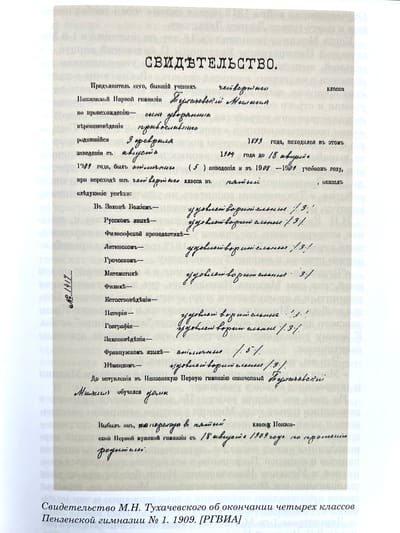 СВИДѢТЕЛЬСТВО.
Предъявитель сего, бывшій ученикъ четвертаго класса
Пензенской Первой гимназіи Тухачевскій Михаилъ
по происхожденію— сынъ дворянина
вѣроисповѣданія православнаго
родившійся 3 февраля 1893 года, находился въ этомъ
заведеніи съ августа 1904 года до 18 августа
1909 года, былъ отличнаго (5) поведенія и въ 1908—1909 учебномъ году,
при переходѣ изъ четвертаго класса въ пятый, оказалъ
слѣдующіе успѣхи:
Въ Законѣ Божіемъ— удовлетворительные /3/
Русскомъ языкѣ— удовлетворительные /3/
Философской пропедевтикѣ—
Латинскомъ— удовлетворительные /3/
Греческомъ—
Математикѣ удовлетворительные 3/
Физикѣ—
Естествовѣдѣніи—
Исторіи— удовлетворительные /3/
Географіи— удовлетворительные /3/
Законовѣдѣніи—
Французскомъ языкѣ— отличные /5/
Нѣмецкомъ— удовлетворительные /3/
До вступленія въ Пензенскую Первую гимназію означенный Тухачевскій
Михаилъ обучался дома
Выбылъ изъ, по переходу въ пятый класса Пензен-
ской Первой мужской гимназіи съ 18 августа 1909 года по прошенію
родителей.
№ 1917
Свидетельство М.Н. Тухачевского об окончании четырех классов
Пензенской гимназии № 1. 1909. [РГВИА]